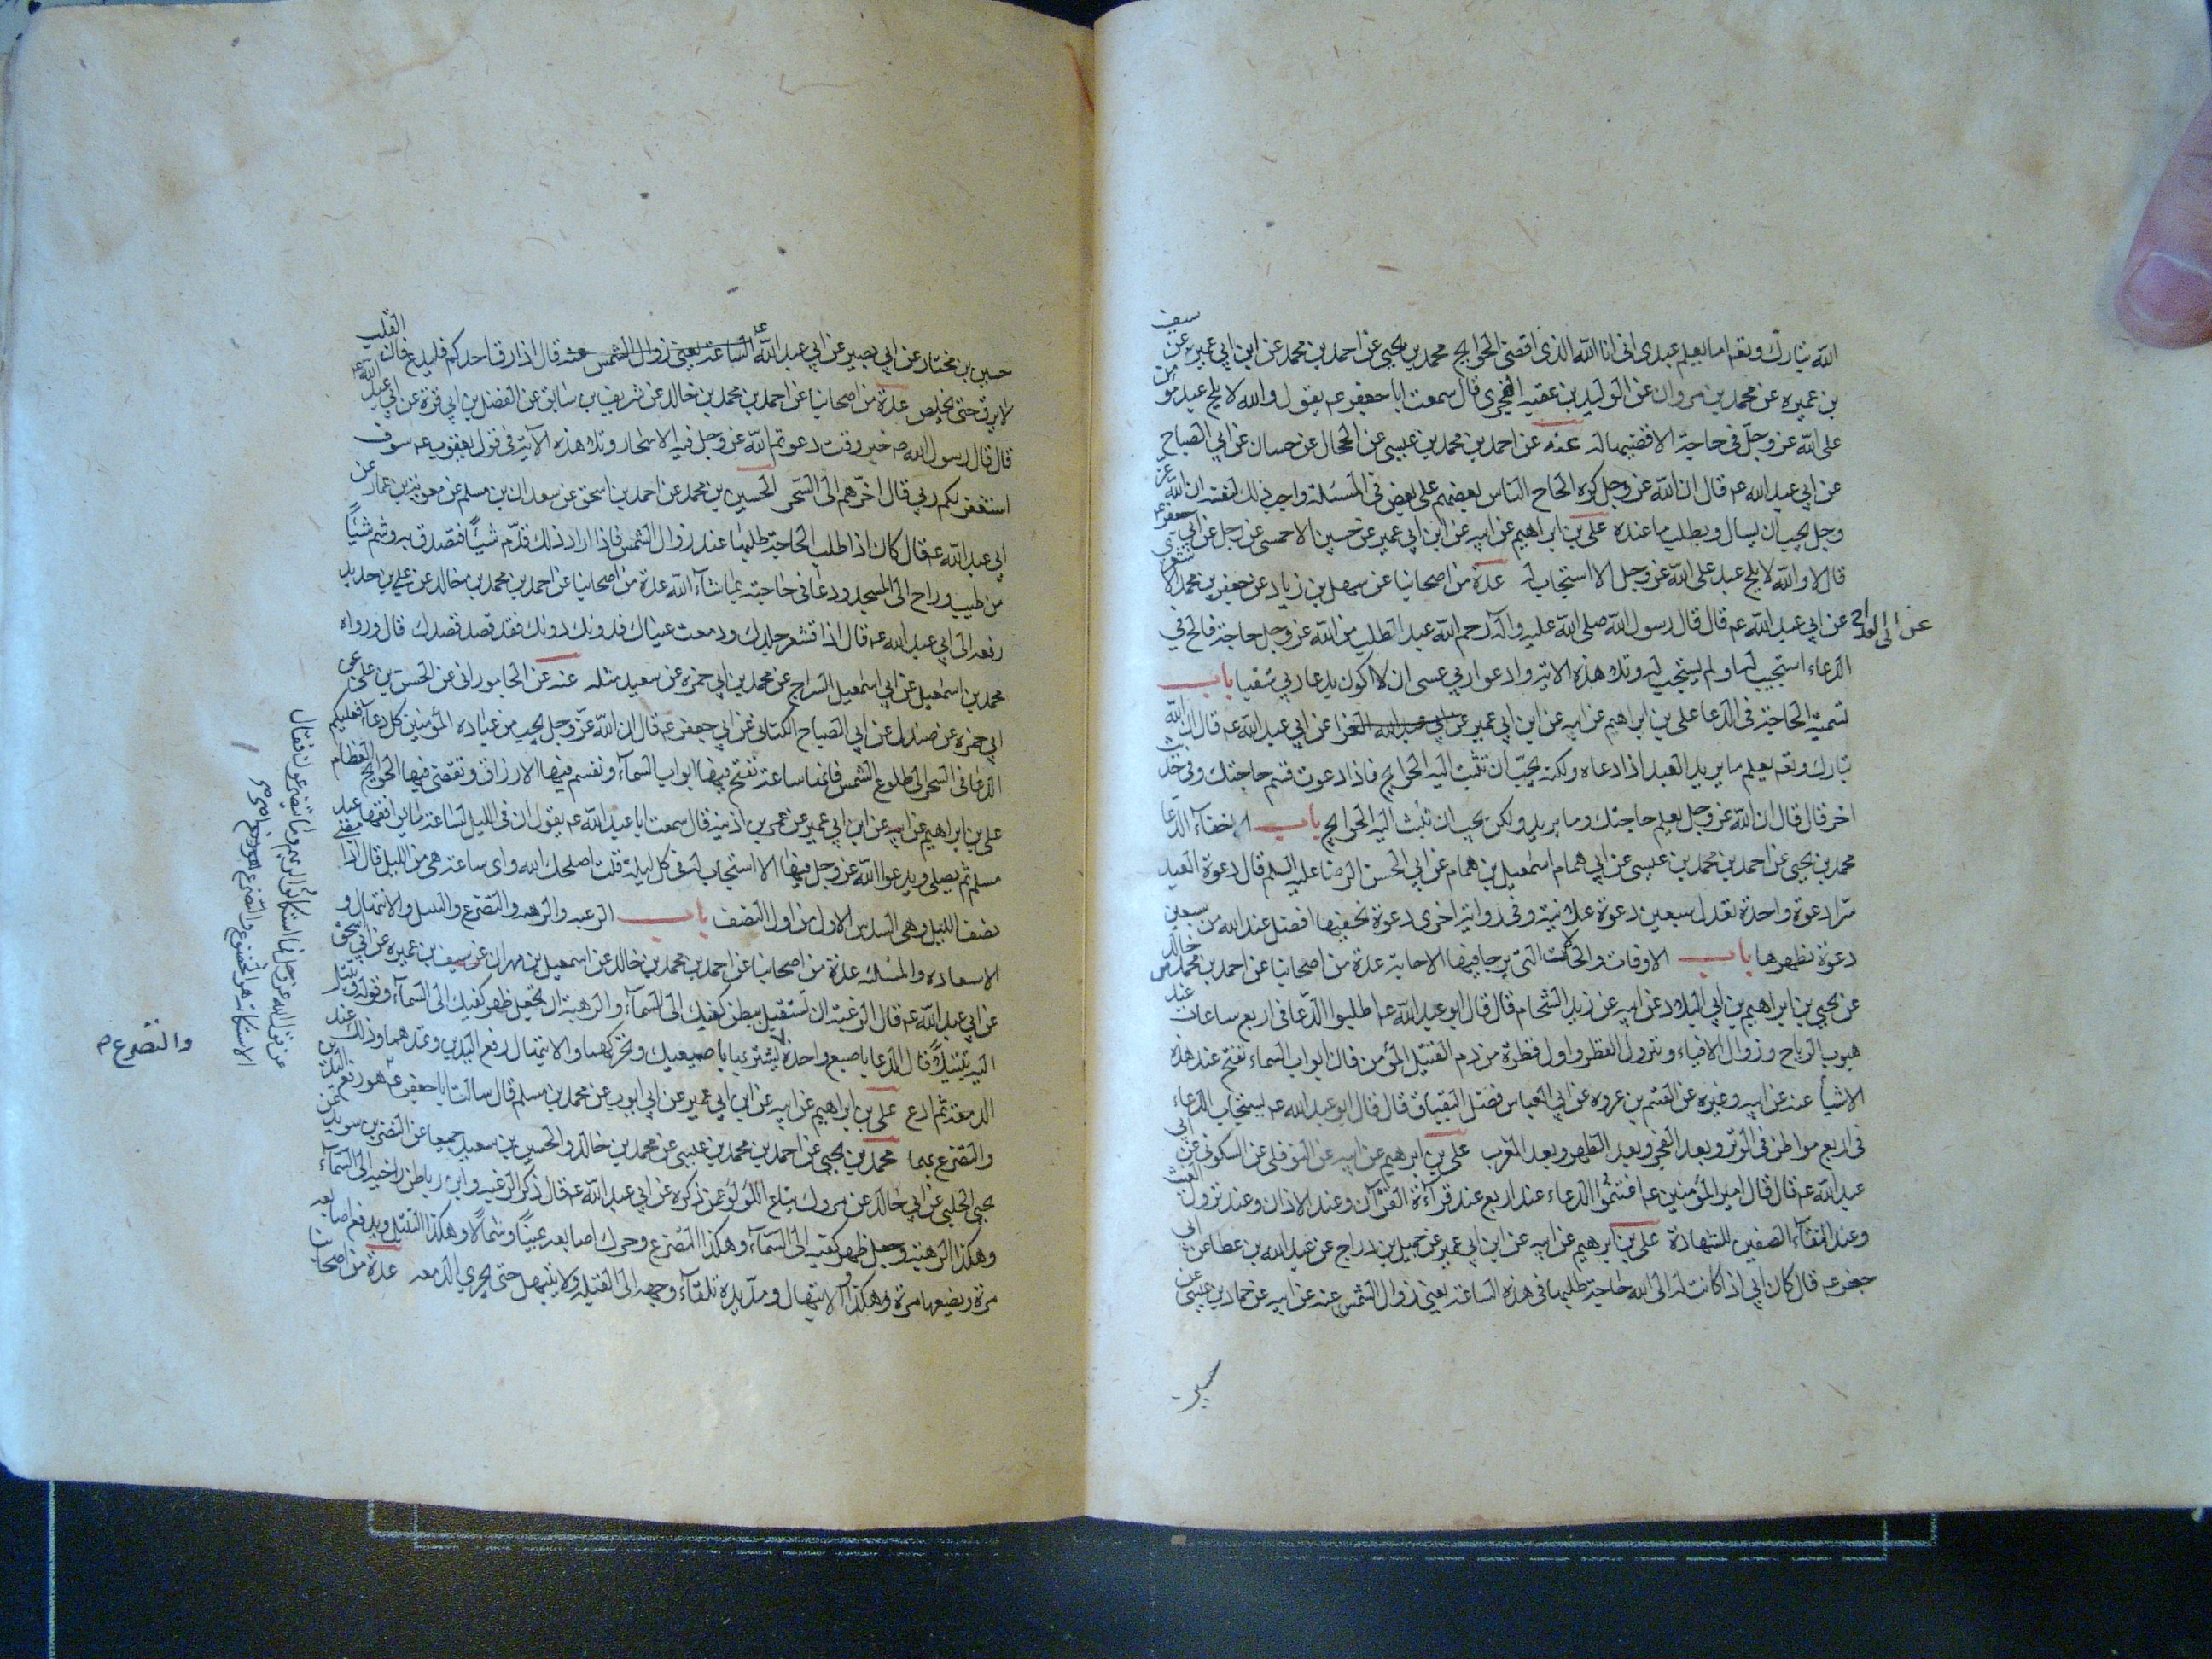 الله تبارك وتعم اما يعلم عبدى انى انا الله الذى اقضى الحوايج محمد بن يحيى عن احمد بن محمد عن ابن ابى عمير عن سيف
بن عميره عن محمد بن مروان عن الوليد بن عقبه الهجرى قال سمعت ابا جعفر عم يقول والله لا يلح عبد مؤمن
على الله عز وجل فى حاجة الا قضيها له عنه عن احمد بن محمد بن عيسى عن الحجال عن حسان عن ابى الصباح
عن ابى عبد الله عم قال ان الله عز وجل كره الحاح الناس بعضهم على بعض فى المسئلة واحب ذلك لنفسه ان الله عز
وجل يحب ان يسال ويطلب ما عنده على بن ابراهيم عن ابيه عن ابن ابى عمير عن حسين الاحمسى عن رجل عن ابى جعفر عم
قال لا والله لا يلح عبد على الله عز وجل الا استجاب له عدة من اصحابنا عن سهل بن زياد عن جعفر بن محمد الاشعرى
عن ابن القداح عن ابى عبد الله عم قال قال رسول الله صلى الله عليه وآله رحم الله عبدا طلب من الله عز وجل حاجة فالح فى
الدعاء استجيب له او لم يستجيب له وتلا هذه الاية وادعوا ربى عسى ان لا اكون بدعاء ربى شقيا باب
تسمية الحاجة فى الدعا على بن ابراهيم عن ابيه عن ابن ابى عمير عن ابى عبد الله الفرا عن ابى عبد الله عم قال ان الله
تبارك وتعم يعلم ما يريد العبد اذا دعاه ولكنه يحب ان تبث اليه الحوايج فاذا دعوت فسم حاجتك وفى حديث
اخر قال قال ان الله عز وجل يعلم حاجتك وما تريد ولكن يحب ان تبث اليه الحوايج باب اخفاء الدعا
محمد بن يحيى عن احمد بن محمد بن عيسى عن ابى همام اسمعيل بن همام عن ابى الحسن الرضا عليه السلم قال دعوة العبد
سرا دعوة واحدة تعدل سبعين دعوة علانية وفى رواية اخرى دعوة تخفيها افضل عند الله من سبعين
دعوة تظهرها باب الاوقات والحالات التى يرجا فيها الاجابة عدة من اصحابنا عن احمد بن محمد بن خالد
عن يحيى بن ابراهيم بن ابى البلاد عن ابيه عن زيد الشحام قال قال ابو عبد الله عم اطلبوا الدعا فى اربع ساعات عند
هبوب الرياح وزوال الافياء ونزول القطر واول قطرة من دم القتيل المؤمن فان ابواب السماء تفتح عند هذه
الاشياء عنه عن ابيه وغيره عن القسم بن عروه عن ابى العباس فضل البقباق قال قال ابو عبد الله عم يستجاب الدعاء
فى اربع مواطن فى الوتر وبعد الفجر وبعد الظهر وبعد المغرب على بن ابرهيم عن ابيه عن النوفلى عن السكونى عن ابى
عبد الله عم قال قال امير المؤمنين عم اغتنموا الدعاء عند اربع عند قرآءة القرآن وعند الاذان وعند نزول الغيث
وعند التقاء الصفين للشهادة على بن ابرهيم عن ابيه عن ابن ابى عمير عن جميل بن دراج عن عبد الله بن عطا عن ابى
جعفر عم قال كان ابى اذا كانت له الى الله حاجة طلبها فى هذه الساعة يعنى زوال الشمس عنه عن ابيه عن حماد بن عيسى عن
حسين
حسين بن مختار عن ابى بصير عن ابى عبد الله عم الساعة يعنى زوال الشمس عنه قال اذا رق احدكم فليدع فان القلب
لا يرق حتى يخلص عدة من اصحابنا عن احمد بن محمد بن خالد عن شريف بن سابق عن الفضل بن ابى قرة عن ابى عبد الله عم
قال قال رسول الله ص خير وقت دعوتم الله عز وجل فيه الاسحار وتلا هذه الآية فى قول يعقوب عم سوف
استغفر لكم ربى قال اخرهم الى السحر الحسين بن محمد عن احمد بن اسحق عن سعدان بن مسلم عن معوية بن عمار عن
ابى عبد الله عم قال كان اذا طلب الحاجة طلبها عند زوال الشمس فاذا اراد ذلك قدم شيئاً فتصدق به وشم شيئاً
من طيب وراح الى المسجد ودعا فى حاجته بما شاء الله عدة من اصحابنا عن احمد بن محمد بن خالد عن على بن حديد
رفعه الى ابى عبد الله عم قال اذا اقشعر جلدك ودمعت عيناك فدونك دونك فقد قصد قصدك قال ورواه
محمد بن اسمعيل عن ابى اسمعيل السراج عن محمد بن ابى حمزه عن سعيد مثله عنه عن الجامورانى عن الحسن بن على عن
ابى حمزه عن صندل عن ابى الصباح الكنانى عن ابى جعفر عم قال ان الله عز وجل يحب من عباده المؤمنين كل دعاء فعليكم
الدعا فى السحر الى طلوع الشمس فانها ساعة تفتح فيها ابواب السماء وتقسم فيها الارزاق وتقضى فيها الحوايج العظام
على بن ابراهيم عن ابيه عن ابن ابى عمير عن عمر بن اذينه قال سمعت ابا عبد الله عم يقول ان فى الليل لساعة ما يوافقها عبد
مسلم ثم يصلى ويدعوا الله عز وجل فيها الا استجاب له فى كل ليلة قلت اصلحك الله واى ساعة هى من الليل قال اذا مضى
نصف الليل وهى السدس الاول من اول النصف باب الرغبه والرهبه والتضرع والتبتل والابتهال و
الاستعاذه والمسئلة عدة من اصحابنا عن احمد بن محمد بن خالد عن اسمعيل بن مهران عن سيف بن عميره عن ابى اسحق
عن ابى عبد الله عم قال الرغبة ان تستقبل ببطن كفيك الى السماء والرهبة ان تجعل ظهر كفيك الى السماء وقوله وتبتل
اليه تبتيلاً قال الدعا باصبع واحدة تشير بها والتضرع تشير باصبعيك وتحركهما والابتهال رفع اليدين وتمدهما وذلك عند
الدمعة ثم ادع على بن ابراهيم عن ابيه عن ابن ابى عمير عن ابى ايوب عن محمد بن مسلم قال سالت ابا جعفر عم
عن قول الله عز وجل فما استكانوا لربهم وما يتضرعون فقال
الاستكانة هو الخضوع والتضرع هو رفع اليدين
والتضرع بهما محمد بن يحيى عن احمد بن محمد بن عيسى عن محمد بن خالد والحسين بن سعيد جميعا عن النضر بن سويد عن
يحيى الحلبى عن ابى خالد عن مروك بياع اللؤلؤ عن ذكره عن ابى عبد الله عم قال ذكر الرغبه وابرز باطن راحتيه الى السماء
وهكذا الرهبة وجعل ظهر كفيه الى السماء وهكذا التضرع وحرك اصابعه يميناً وشمالاً وهكذا التبتل ويرفع اصابعه
مرة ويضعها مرة وهكذا الابتهال ومد يده تلقاء وجهه الى القبلة ولا يبتهل حتى يجرى الدمعه عدة من اصحابنا
والتضرع ص